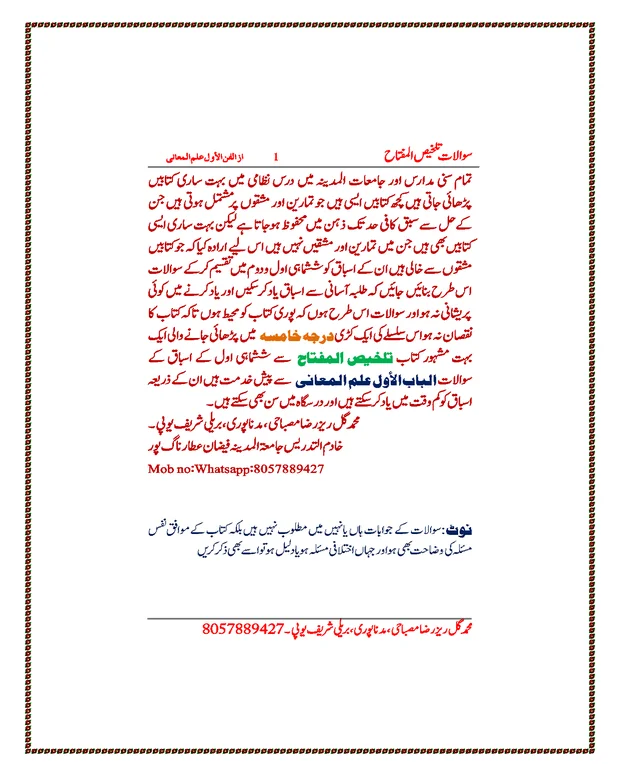 سوالات تلخیص المفتاح 1 از الفن الأول علم المعانی
تمام سنی مدارس اور جامعات المدینہ میں درس نظامی میں بہت ساری کتابیں
پڑھائی جاتی ہیں کچھ کتابیں ایسی ہیں جو تمارین اور مشقوں پر مشتمل ہوتی ہیں جن
کے حل سے سبق کافی حد تک ذہن میں محفوظ ہو جاتا ہے لیکن بہت ساری ایسی
کتابیں بھی ہیں جن میں تمارین اور مشقیں نہیں ہیں اس لیے ارادہ کیا کہ جو کتابیں
مشقوں سے خالی ہیں ان کے اسباق کو ششماہی اول و دوم میں تقسیم کر کے سوالات
اس طرح بنائیں جائیں کہ طلبہ آسانی سے اسباق یاد کر سکیں اور یاد کرنے میں کوئی
پریشانی نہ ہو اور سوالات اس طرح ہوں کہ پوری کتاب کو محیط ہوں تاکہ کتاب کا
نقصان نہ ہو اس سلسلے کی ایک کڑی درجہ خامسہ میں پڑھائی جانے والی ایک
بہت مشہور کتاب تلخیص المفتاح سے ششماہی اول کے اسباق کے
سوالات الباب الأول علم المعانی سے پیش خدمت ہیں ان کے ذریعہ
اسباق کو کم وقت میں یاد کر سکتے ہیں اور درسگاہ میں سن بھی سکتے ہیں۔
محمد گل ریز رضا مصباحی، مدناپوری، بریلی شریف یوپی۔
خادم التدریس جامعۃ المدینہ فیضان عطار ناگ پور
Mob no:Whatsapp:8057889427
نوٹ: سوالات کے جوابات ہاں یا نہیں میں مطلوب نہیں ہیں بلکہ کتاب کے موافق نفس
مسئلہ کی وضاحت بھی ہو اور جہاں اختلافی مسئلہ ہو یا دلیل ہو تو اسے بھی ذکر کریں
محمد گل ریز رضا مصباحی، مدناپوری، بریلی شریف یوپی۔ 8057889427